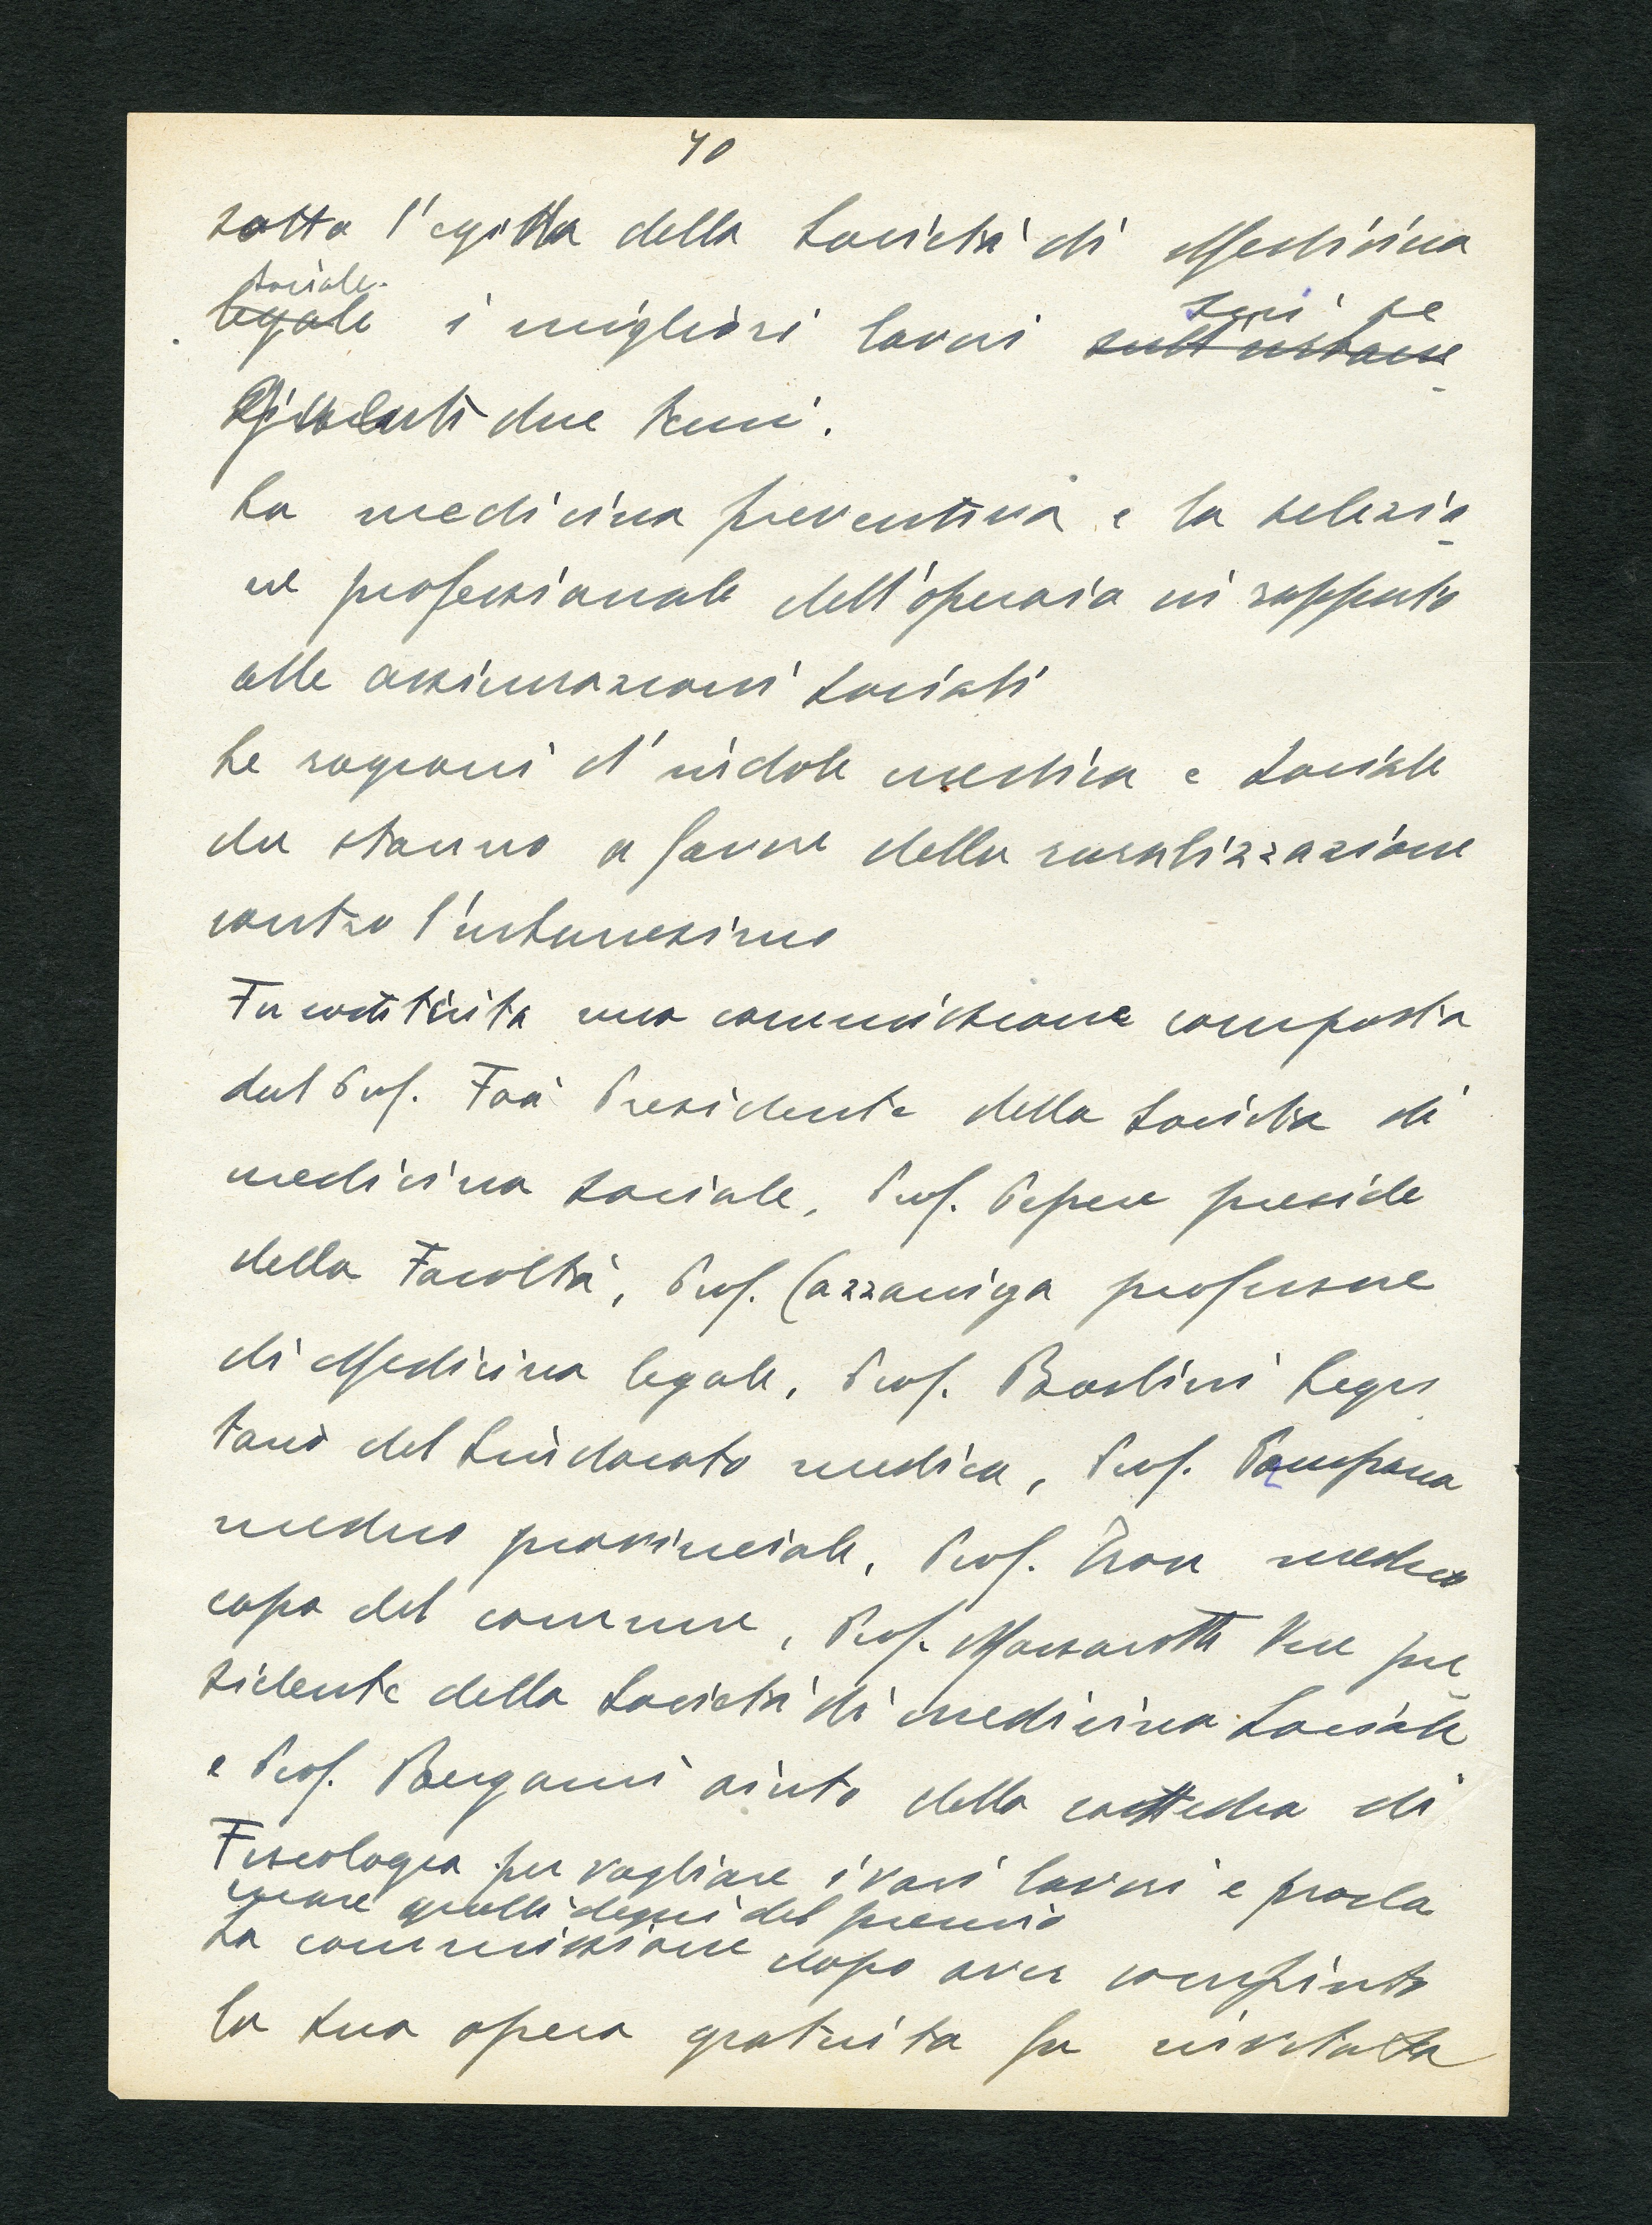 40
sotto l'egida della Società di Medicina
sociale
legale i migliori lavori sui se
guenti due temi.
La medicina preventiva e la selezio
ne professionale dell'operaio in rapporto
alle assicurazioni sociali
Le ragioni d'indole medica e sociale
che stanno a favore della ruralizzazione
contro l'urbanesimo
Fu costituita una commissione composta
dal Prof. Foà Presidente della Società di
medicina sociale, Prof. Pepere preside
della Facoltà, Prof. Cazzaniga professore
di Medicina legale, Prof. Segre
tario del Sindacato medico, Prof. Pampana
medico provinciale, Prof. medico
capo del comune, Prof. Massarotti Vice pre
sidente della Società di medicina Sociale
e Prof. Bergami aiuto della cattedra di
Fisiologia per vagliare i vari lavori e procla
mare quelli degni del premio
La commissione dopo aver compiuto
la sua opera gratuita fu invitata